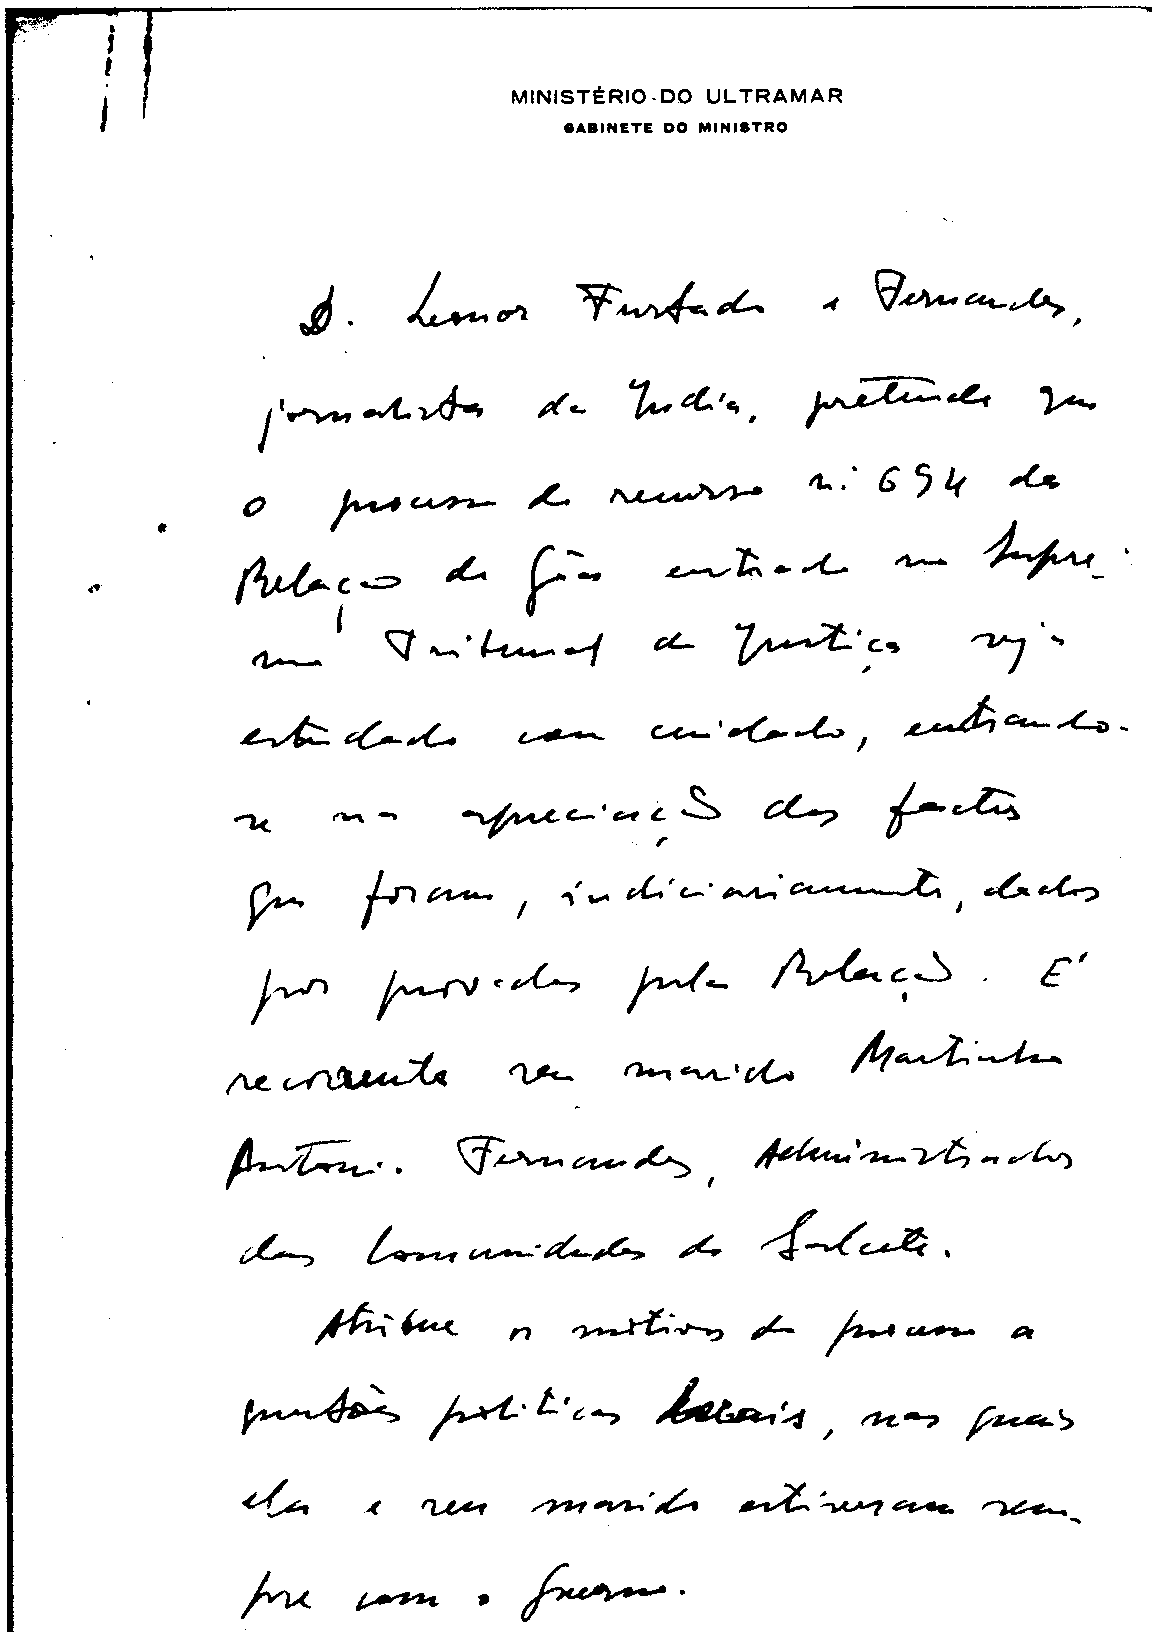 MINISTÉRIO DO ULTRAMAR
GABINETE DO MINISTRO
D. Leonor Furtado e Fernandes,
jornalista da India, pretende que
o processo de recurso n.º 694 da
Relação de Gôa entrado no Supre-
mo Tribunal de Justiça seja
estudado com cuidado, entrando-
se na apreciação dos factos
que foram, indiciariamente, dados
por provados pela Relação. É
recorrente seu marido Martinho
Antonio Fernandes, Administrador
das Comunidades de Salcete.
Atribue os motivos do processo a
questões politicas locais, nas quais
ela e seu marido estiveram sem-
pre com o Governo.